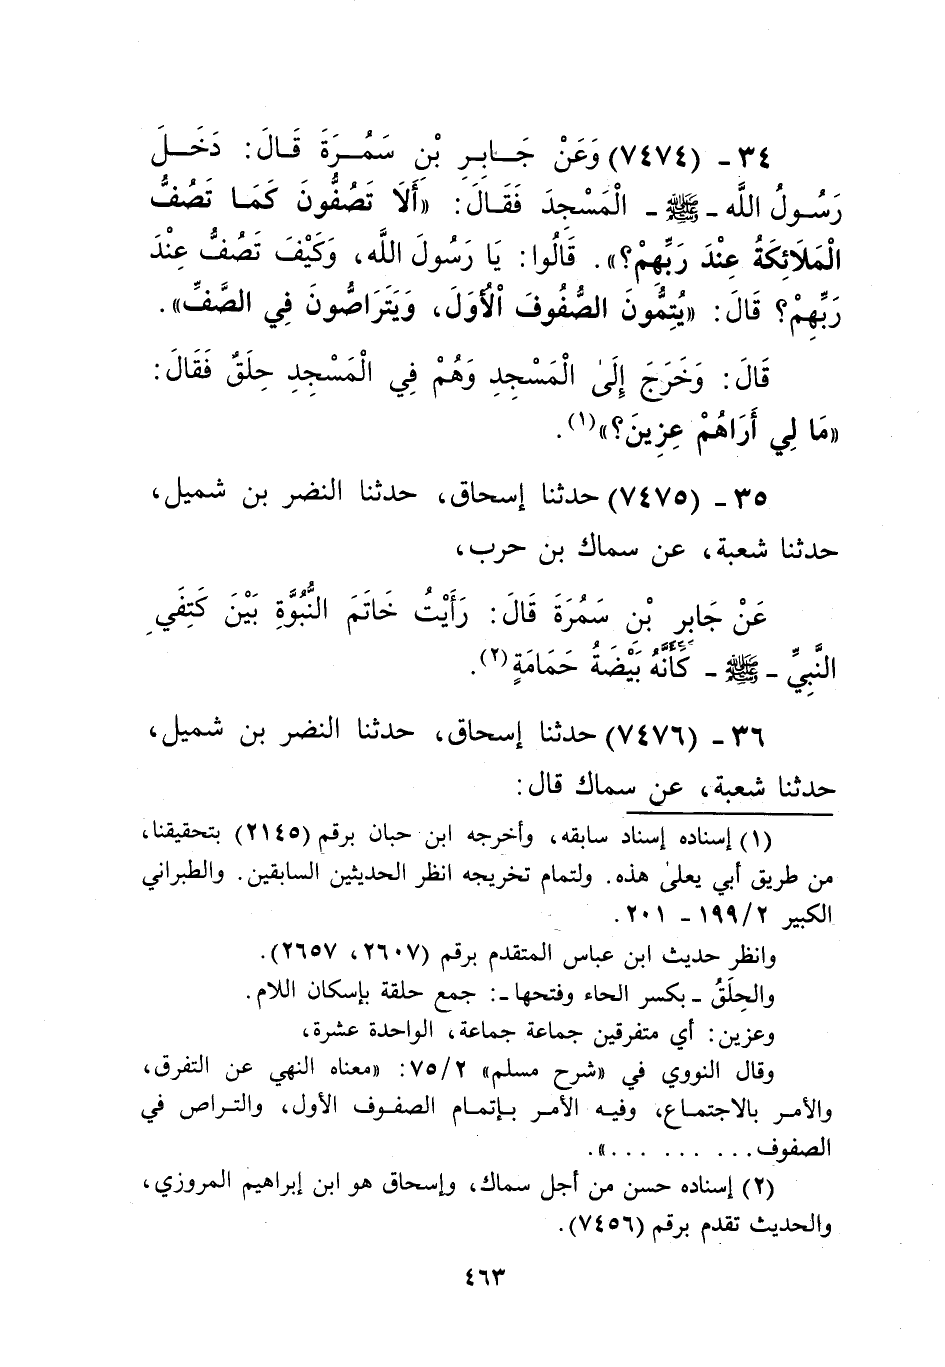 ٣٤ - (٧٤٧٤) وَعَنْ جَابِرِ بْنِ سَمُرَةَ قَالَ: دَخَلَ
رَسُولُ اللَّه - ﷺ - الْمَسْجِدَ فَقَالَ: «أَلَا تَصُفُّونَ كَمَا تَصُفُّ
الْمَلَائِكَةُ عِنْدَ رَبِّهِمْ؟». قَالُوا: يَا رَسُولَ اللَّه، وَكَيْفَ تَصُفُّ عِنْدَ
رَبِّهِمْ؟ قَالَ: «يُتِمُّونَ الصُّفُوفَ الْأُوَلَ، وَيَتَرَاصُّونَ فِي الصَّفِّ».
قَالَ: وَخَرَجَ إِلَىٰ الْمَسْجِدِ وَهُمْ فِي الْمَسْجِدِ حِلَقٌ فَقَالَ:
«مَا لِي أَرَاهُمْ عِزِينَ؟»(١).
٣٥ - (٧٤٧٥) حدثنا إسحاق، حدثنا النضر بن شميل،
حدثنا شعبة، عن سماك بن حرب،
عَنْ جَابِرِ بْنِ سَمُرَةَ قَالَ: رَأَيْتُ خَاتَمَ النُّبُوَّةِ بَيْنَ كَتِفَيِ
النَّبِيِّ - ﷺ - كَأَنَّهُ بَيْضَةُ حَمَامَةٍ(٢).
٣٦ - (٧٤٧٦) حدثنا إسحاق، حدثنا النضر بن شميل،
حدثنا شعبة، عن سماك قال:
(١) إسناده إسناد سابقه، وأخرجه ابن حبان برقم (٢١٤٥) بتحقيقنا،
من طريق أبي يعلىٰ هذه. ولتمام تخريجه انظر الحديثين السابقين. والطبراني
الكبير ١٩٩/٢ - ٢٠١.
وانظر حديث ابن عباس المتقدم برقم (٢٦٠٧، ٢٦٥٧).
والحِلَقُ - بكسر الحاء وفتحها -: جمع حلقة بإسكان اللام.
وعزين: أي متفرقين جماعة جماعة، الواحدة عشرة،
وقال النووي في «شرح مسلم» ٧٥/٢: «معناه النهي عن التفرق،
والأمر بالاجتماع، وفيه الأمر بإتمام الصفوف الأول، والتراص في
الصفوف... ... ...».
(٢) إسناده حسن من أجل سماك، وإسحاق هو ابن إبراهيم المروزي،
والحديث تقدم برقم (٧٤٥٦).
٤٦٣